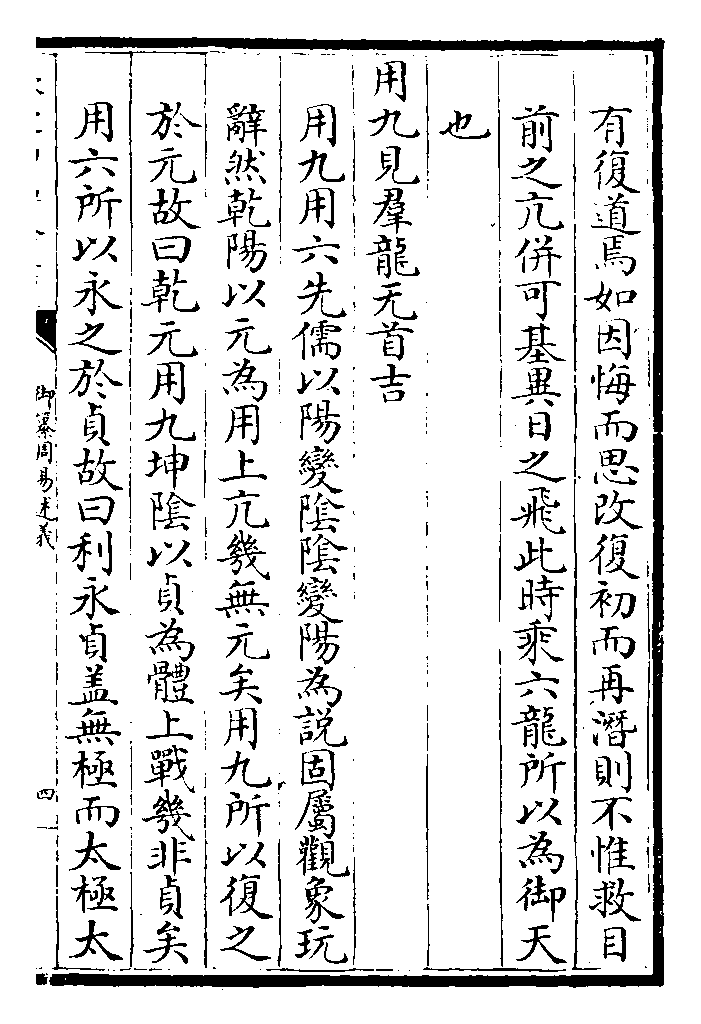 有復道焉如因悔而思改復初而再潛則不惟救目
前之亢併可基異日之飛此時乘六龍所以為御天
也
用九見羣龍无首吉
用九用六先儒以陽變陰陰變陽為説固屬觀象玩
辭然乾陽以元為用上亢幾無元矣用九所以復之
於元故曰乾元用九坤陰以貞為體上戰幾非貞矣
用六所以永之於貞故曰利永貞盖無極而太極太
御纂周易述義
四